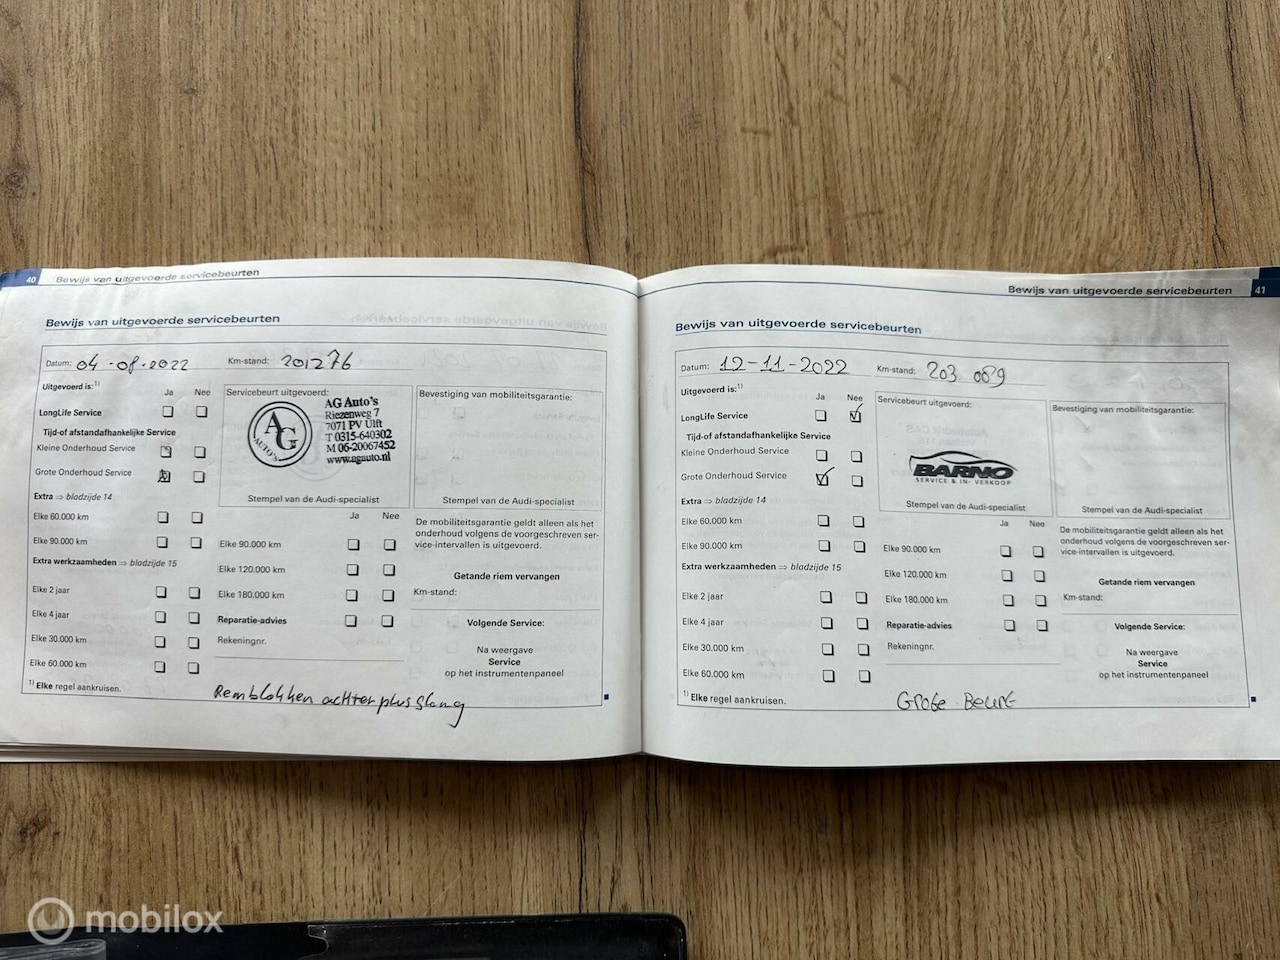 40 Bewijs van uitgevoerde servicebeurten
Bewijs van uitgevoerde servicebeurten
Datum: 04-08-2022 Km-stand: 201276
Uitgevoerd is:1)
Ja Nee
LongLife Service
Tijd-of afstandafhankelijke Service
Kleine Onderhoud Service
Grote Onderhoud Service
Extra ⇒ bladzijde 14
Elke 60.000 km
Elke 90.000 km
Extra werkzaamheden ⇒ bladzijde 15
Elke 2 jaar
Elke 4 jaar
Elke 30.000 km
Elke 60.000 km
1) Elke regel aankruisen.
Servicebeurt uitgevoerd:
AG
AUTO'S
AG Auto's
Riezenweg 7
7071 PV Ulft
T 0315-640302
M 06-20067452
www.agauto.nl
Stempel van de Audi-specialist
Ja Nee
Elke 90.000 km
Elke 120.000 km
Elke 180.000 km
Reparatie-advies
Rekeningnr.
Remblokken achter plus slang
Bevestiging van mobiliteitsgarantie:
Stempel van de Audi-specialist
De mobiliteitsgarantie geldt alleen als het
onderhoud volgens de voorgeschreven ser-
vice-intervallen is uitgevoerd.
Getande riem vervangen
Km-stand:
Volgende Service:
Na weergave
Service
op het instrumentenpaneel
Bewijs van uitgevoerde servicebeurten 41
Bewijs van uitgevoerde servicebeurten
Datum: 12-11-2022 Km-stand: 203.089
Uitgevoerd is:1)
Ja Nee
LongLife Service
Tijd-of afstandafhankelijke Service
Kleine Onderhoud Service
Grote Onderhoud Service
Extra ⇒ bladzijde 14
Elke 60.000 km
Elke 90.000 km
Extra werkzaamheden ⇒ bladzijde 15
Elke 2 jaar
Elke 4 jaar
Elke 30.000 km
Elke 60.000 km
1) Elke regel aankruisen.
Servicebeurt uitgevoerd:
BARNO
SERVICE & IN- VERKOOP
Stempel van de Audi-specialist
Ja Nee
Elke 90.000 km
Elke 120.000 km
Elke 180.000 km
Reparatie-advies
Rekeningnr.
Grote Beurt
Bevestiging van mobiliteitsgarantie:
Stempel van de Audi-specialist
De mobiliteitsgarantie geldt alleen als het
onderhoud volgens de voorgeschreven ser-
vice-intervallen is uitgevoerd.
Getande riem vervangen
Km-stand:
Volgende Service:
Na weergave
Service
op het instrumentenpaneel
mobilox